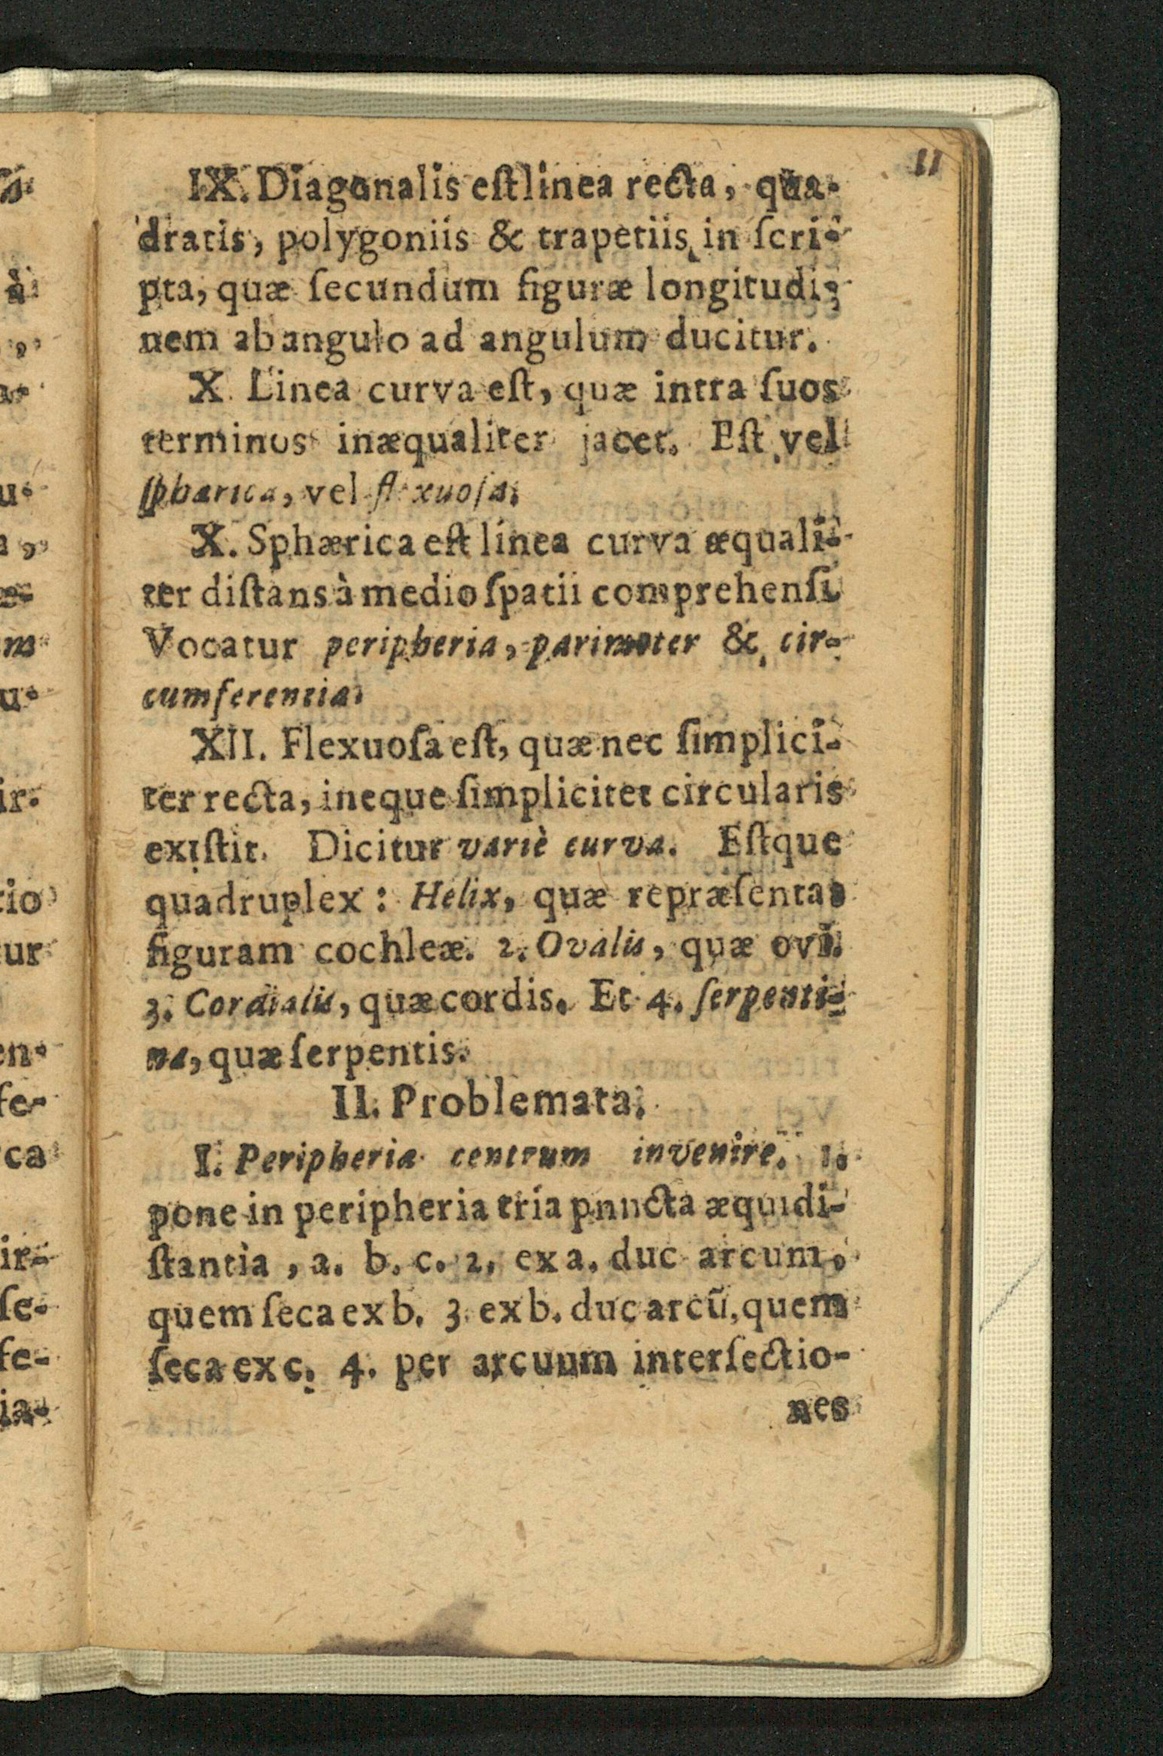 11
IX. Diagonalis eſt linea recta, qua-
dratis, polygoniis & trapetiis in ſcri-
pta, quæ ſecundum figuræ longitudi-
nem ab angulo ad angulum ducitur.
X Linea curva eſt, quæ intra ſuos
terminos inæqualiter jacet. Eſt vel
ſphærica, vel flexuoſa.
X. Sphærica eſt linea curva æquali-
ter diſtans à medio ſpatii comprehenſi.
Vocatur peripheria, parimeter & cir-
cumferentia.
XII. Flexuoſa eſt, quæ nec ſimplici-
ter recta, ineque ſimpliciter circularis
exiſtit. Dicitur variè curva. Eſtque
quadruplex: Helix, quæ repræſentas
figuram cochleæ. 2. Ovalis, quæ ovi.
3. Cordialis, quæ cordis. Et 4. ſerpenti-
na, quæ ſerpentis.
II. Problemata.
I. Peripheria centrum invenire. 1.
pone in peripheria tria pnncta æquidi-
ſtantia, a. b. c. 2. ex a. duc arcum,
quem ſeca ex b. 3. ex b. duc arcũ, quem
ſeca ex c. 4. per arcuum interſectio-
nes